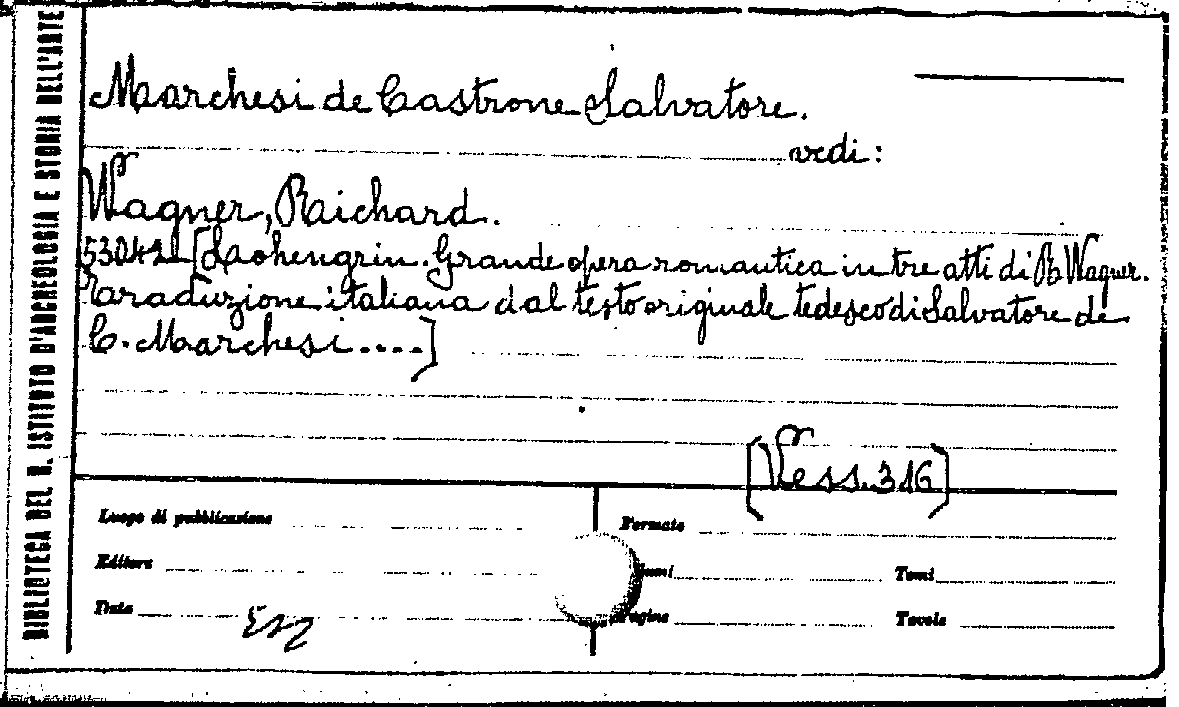 BIBLIOTECA DEL R. ISTITUTO D'ARCHEOLOGIA E STORIA DELL'ARTE
Marchesi de Castrone Salvatore.
vedi:
Wagner, Richard.
53042 [Lohengrin. Grande opera romantica in tre atti di R. Wagner.
Traduzione italiana dal testo originale tedesco di Salvatore de
C. Marchesi....]
[Vess. 316]
Luogo di pubblicazione
Formato
Editore
Tomi
Data
Pagine
Tavole